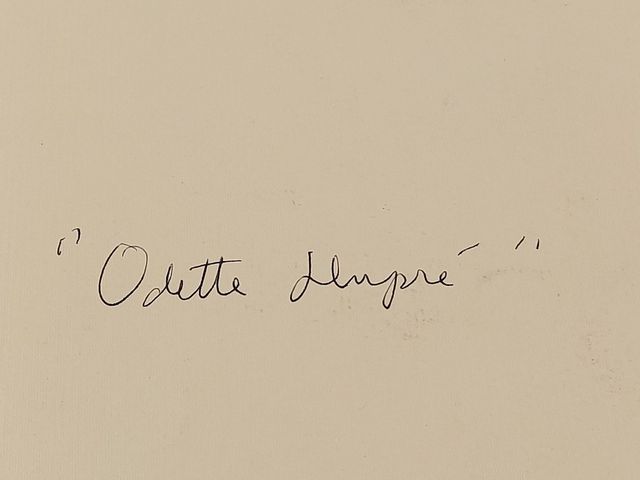 "Odette Dupré"